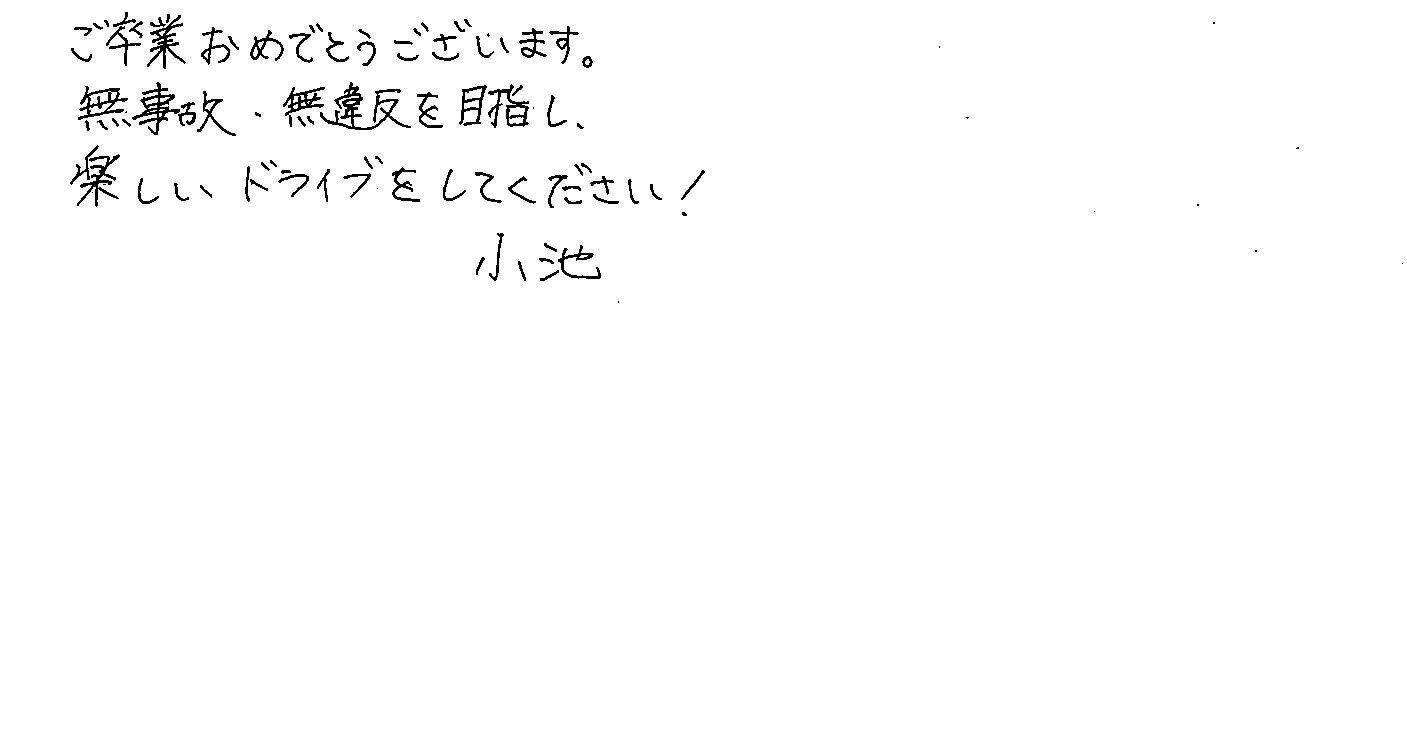 ご卒業おめでとうございます。
無事故・無違反を目指し、
楽しいドライブをしてください！
小池